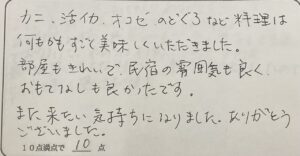 カニ、活イカ、オコゼ、のどぐろなど料理は
何もかもすごく美味しくいただきました。
部屋もきれいで、民宿の雰囲気も良く、
おもてなしも良かったです。
また来たい気持ちになりました。ありがとう
ございました。
10点満点で 10 点